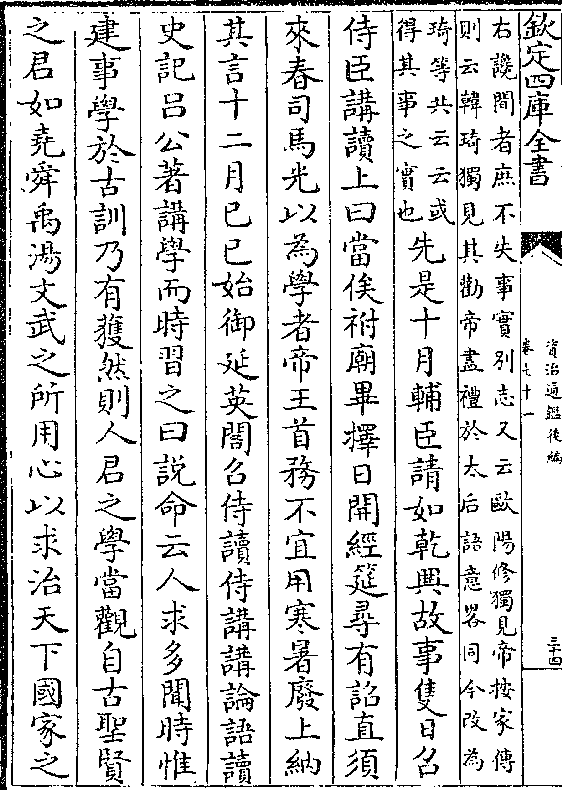 欽定四庫全書
資治通鑑後編
卷七十一
三十四
右讒間者庶不失事實別志又云歐陽修獨見帝按家傳
則云韓琦獨見其勸帝盡禮於太后語意畧同今改為
琦等共云云或
得其事之實也
先是十月輔臣請如乾興故事隻日召
侍臣講讀上曰當俟祔廟畢擇日開經筵尋有詔直須
來春司馬光以為學者帝王首務不宜用寒暑廢上納
其言十二月己巳始御延英閣召侍讀侍講講論語讀
史記呂公著講學而時習之曰說命云人求多聞時惟
建事學於古訓乃有獲然則人君之學當觀自古聖賢
之君如堯舜禹湯文武之所用心以求治天下國家之